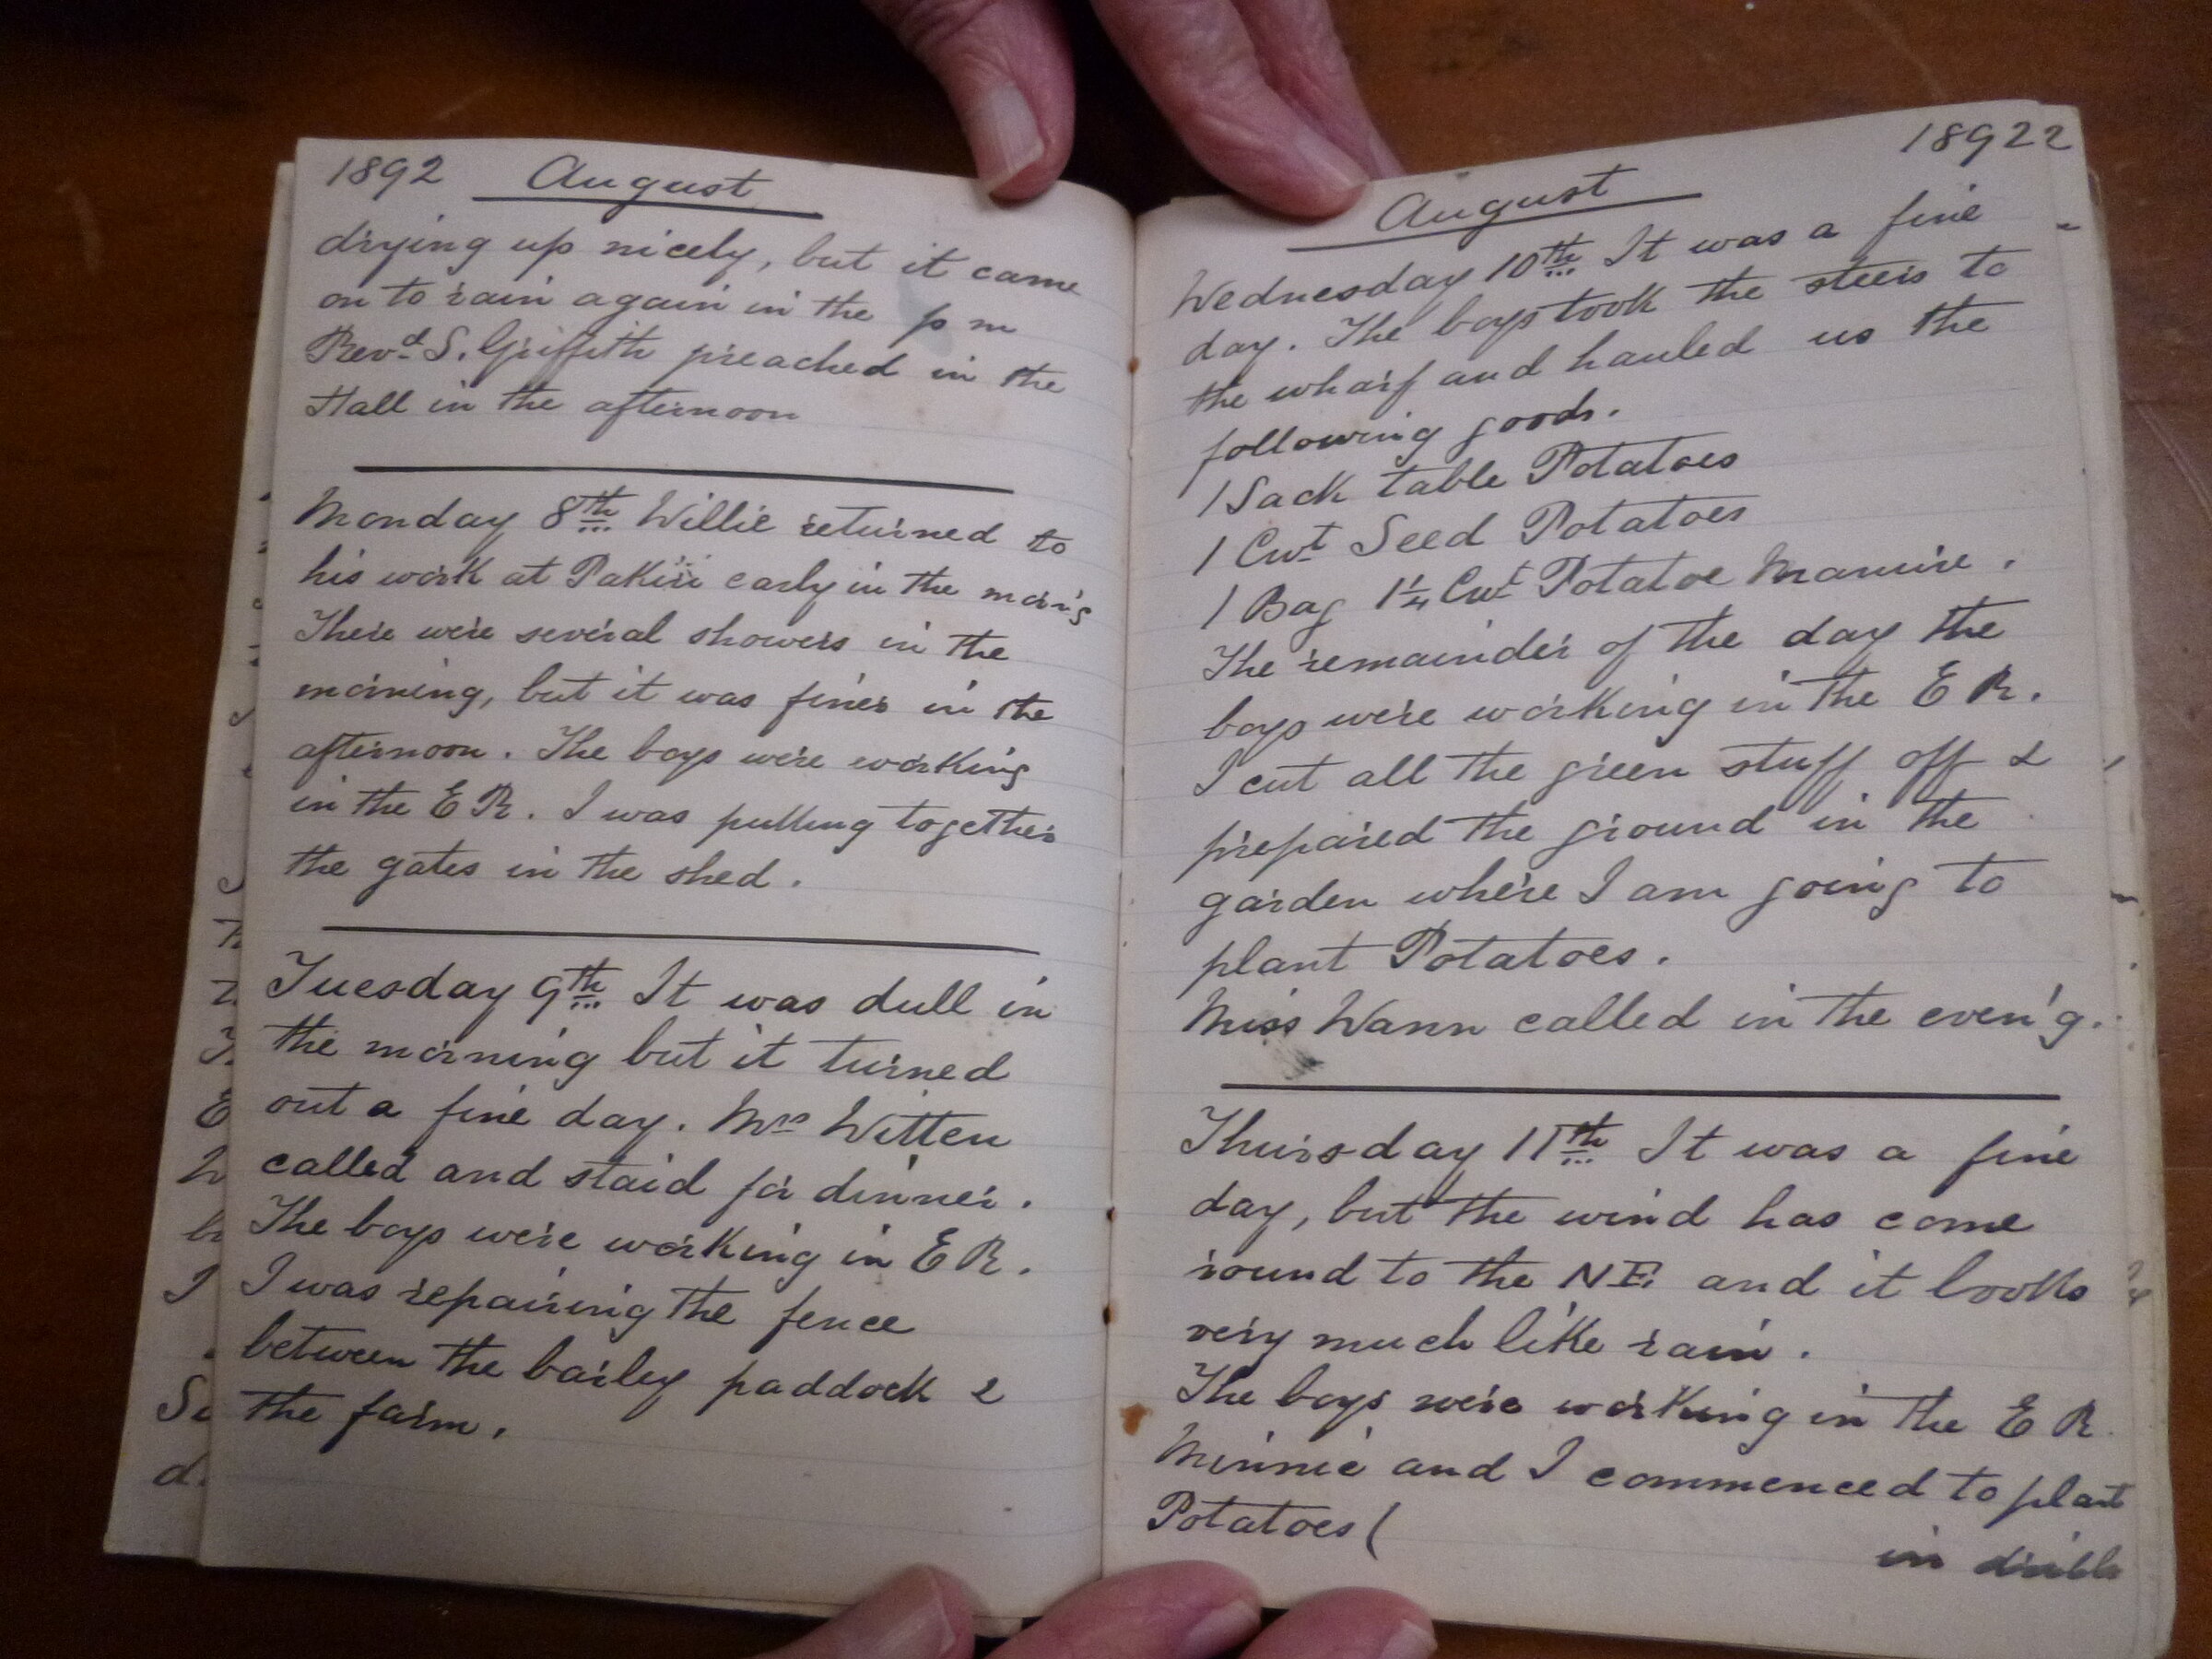 1892 August
drying up nicely, but it came
on to rain again in the p m
Revd. S. Griffith preached in the
Hall in the afternoon
Monday 8th Willie returned to
his work at Pakiri early in the morn'g
There were several showers in the
morning, but it was finer in the
afternoon. The boys were working
in the E R. I was putting together
the gates in the shed.
Tuesday 9th It was dull in
the morning but it turned
out a fine day. Mrs Witten
called and staid for dinner.
The boys were working in E R.
I was repairing the fence
between the barley paddock &
the farm.
18922
August
Wednesday 10th It was a fine
day. The boys took the steers to
the wharf and hauled us the
following goods.
1 Sack table Potatoes
1 Cwt Seed Potatoes
1 Bag 1¼ Cwt Potatoe Manure.
The remainder of the day the
boys were working in the E R.
I cut all the green stuff off &
prepared the ground in the
garden where I am going to
plant Potatoes.
Miss Wann called in the even'g.
Thursday 11th It was a fine
day, but the wind has come
round to the NE. and it looks
very much like rain.
The boys were working in the E R
Minnie and I commenced to plant
Potatoes (
in